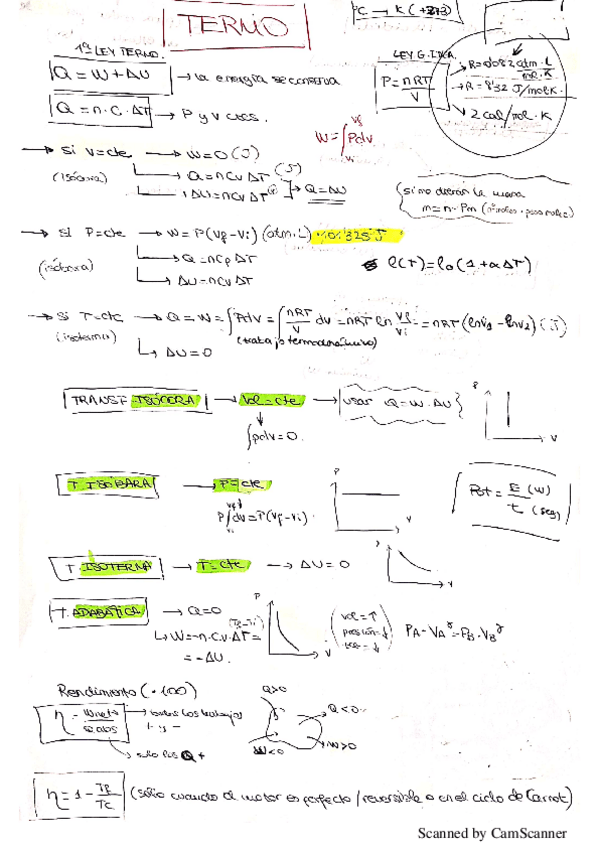 TERMO
ºC → K (+273)
1ª LEY TERMO.
Q = W + ΔU → la energía se conserva
Q = n · C · ΔT → P y V ctes.
LEY G. IDEAL
P = nRT / V
R = 0'082 atm · L / mol · K
→ R = 8'32 J/mol K
↘ 2 cal/mol · K
W = ∫ Pdv
→ Si V = cte → W = 0 (J)
(Isócora)
→ Q = nCv ΔT (J)
→ ΔU = nCv ΔT
→ Q = ΔU
si no dieran la masa
m = n · Pm (nº moles · peso molec)
→ Si P = cte → W = P(Vf - Vi) (atm·L)
(isóbara)
→ Q = nCp ΔT
→ ΔU = nCv ΔT
l(T) = l0 (1 + α ΔT)
→ Si T = cte → Q = W = ∫ Pdv = ∫ nRT/V dv = nRT ln Vf/Vi = nRT (lnVf - lnVi) (J)
(isoterma)
(trabajo termodinámico)
↳ ΔU = 0
TRANSF ISÓCORA → Vol = cte → usar Q = W · ΔU
∫ pdv = 0
P
V
T. ISÓBARA → P = cte
P ∫ dv = P(Vf - Vi)
P
V
Pot = E (W) / t (seg)
T. ISOTERMA → T = cte → ΔU = 0
V
T. ADIABÁTICA → Q = 0
↳ W = -n · Cv · ΔT =
= -ΔU.
P
V
Vol = ↑
presión = ↓
PA · VA^γ = PB · VB^γ
Rendimiento (· 100)
η = Wneto / Qabs
→ todos los trabajos
+ y -
→ solo los Q +
Q>0
Q<0
W<0
W>0
η = 1 - TF / TC (sólo cuando el motor es perfecto / reversible o en el ciclo de Carnot)
Scanned by CamScanner